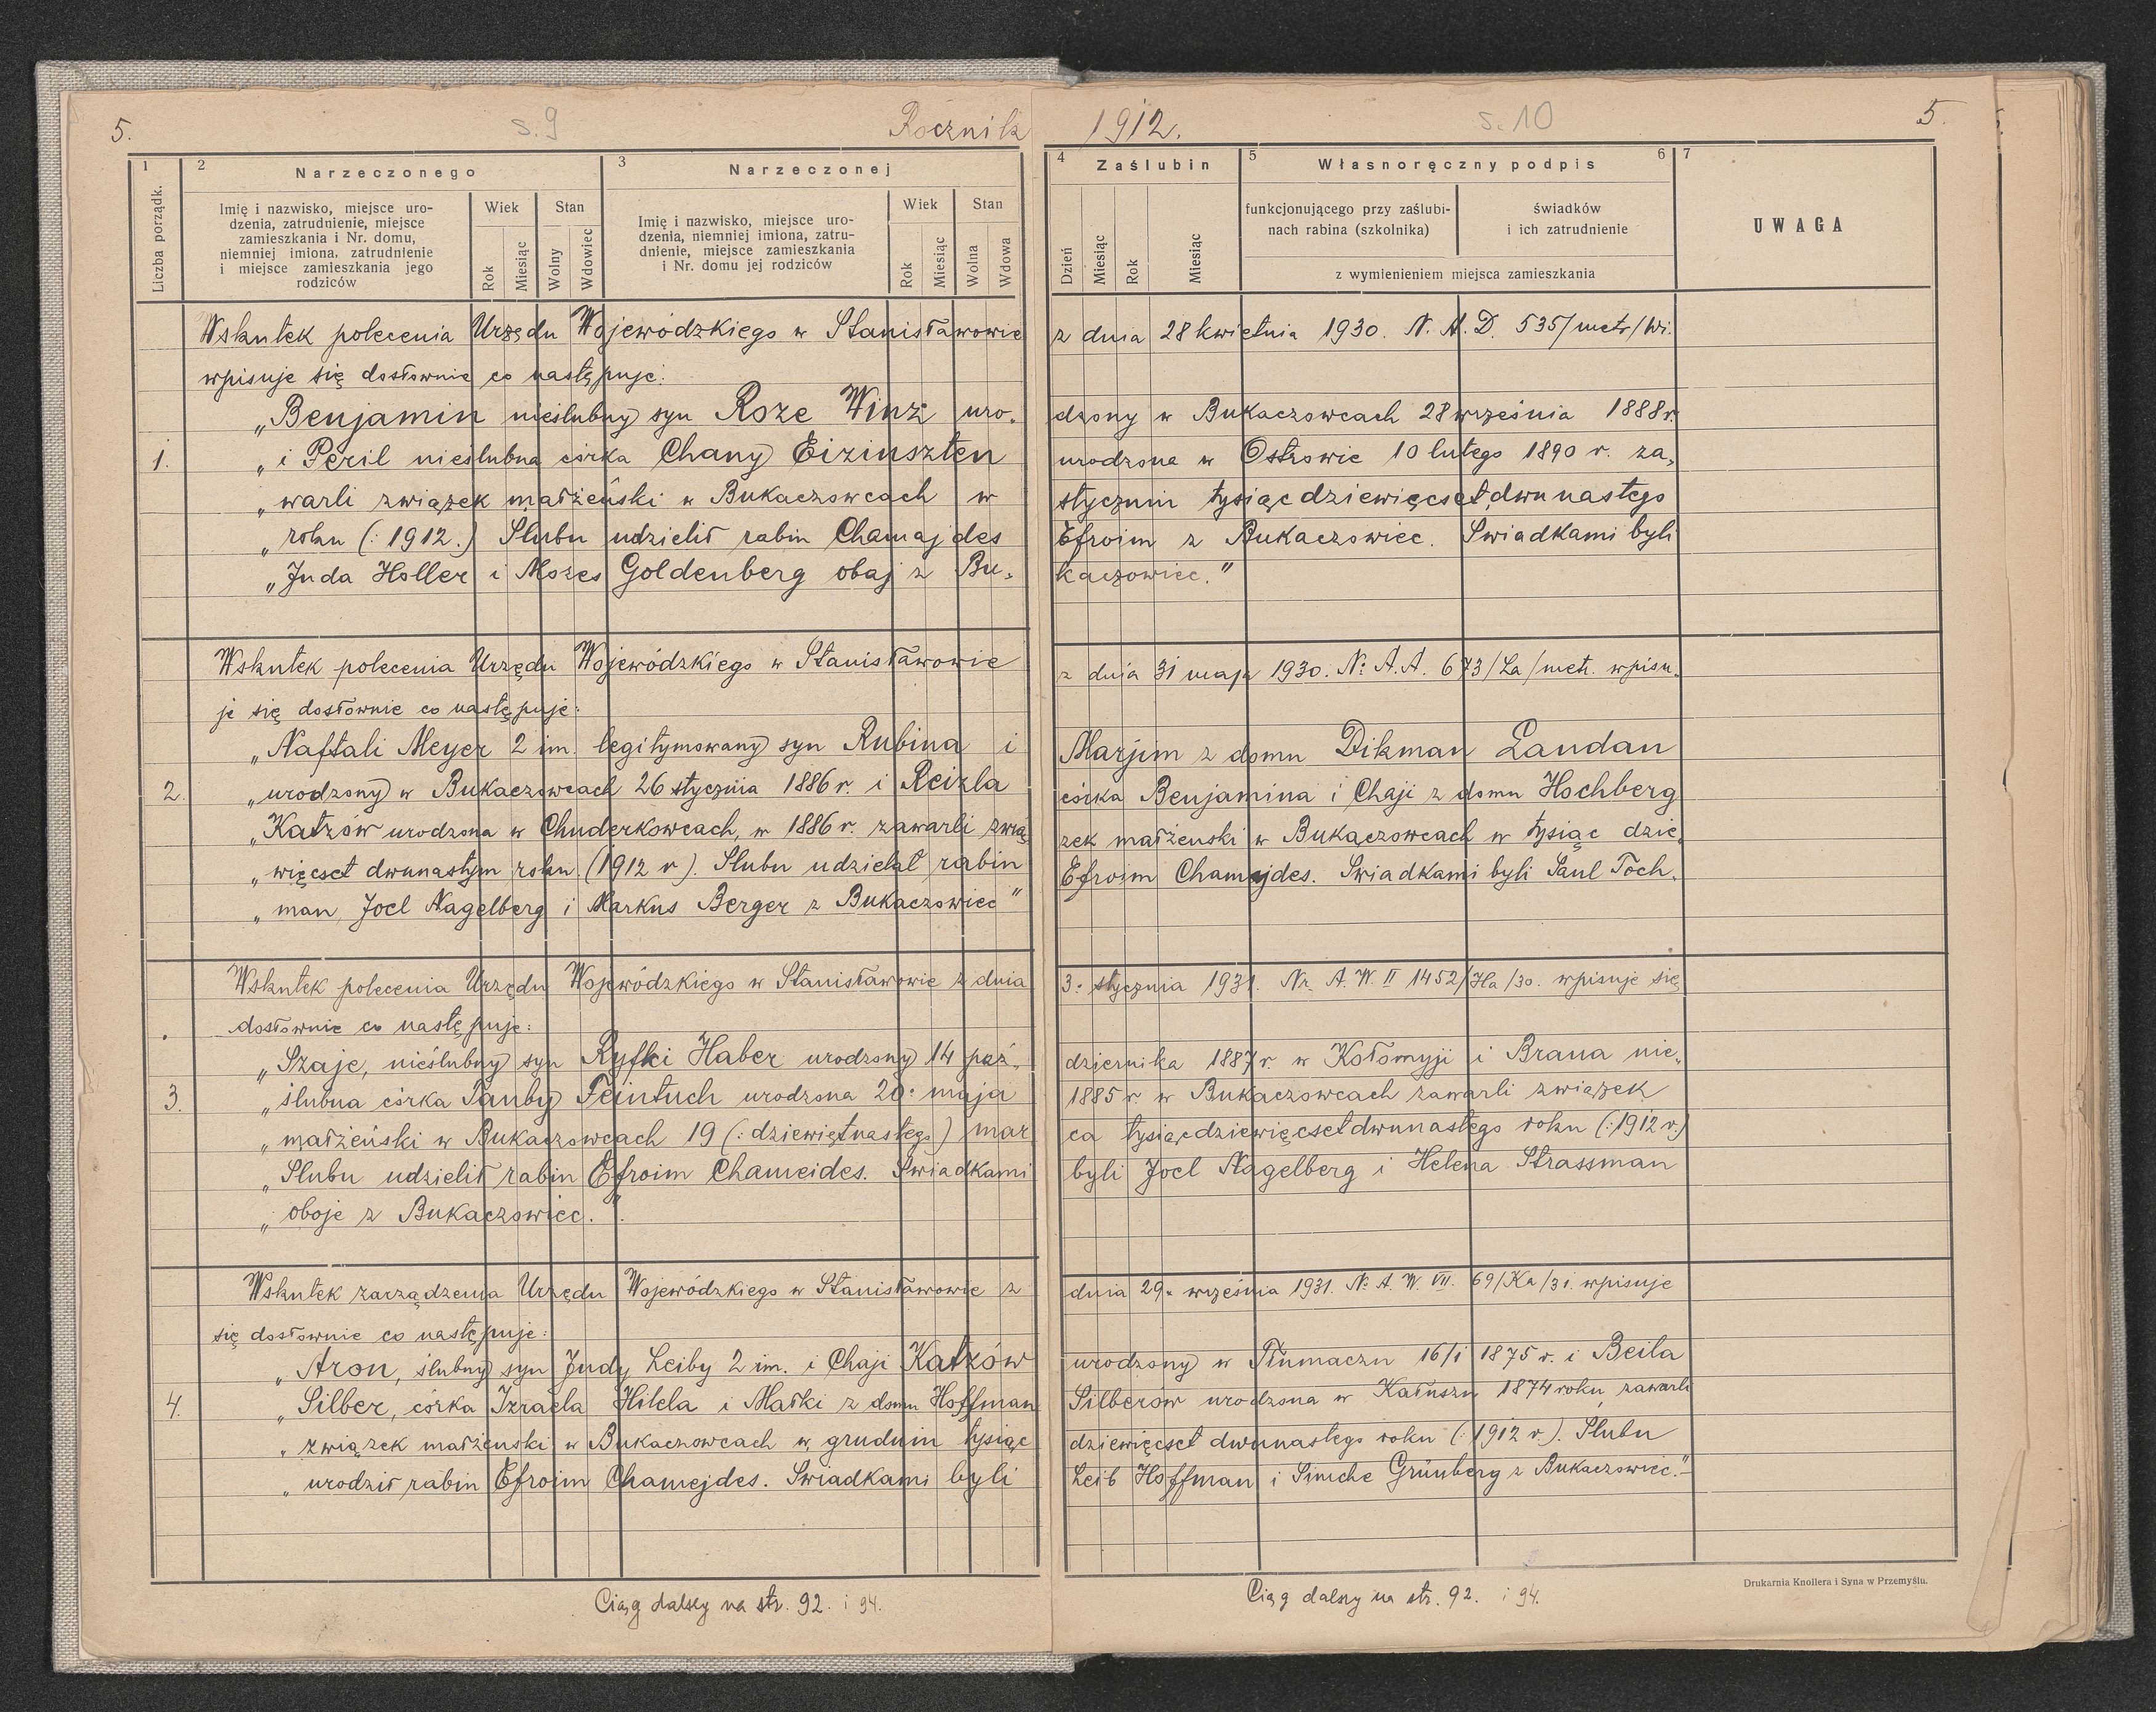 5.
s. 9
Rocznik 1912.
s. 10
5.
1
2
Narzeczonego
3
Narzeczonej
4
Zaślubin
5
Własnoręczny podpis
6
7
Liczba porządk.
Imię i nazwisko, miejsce uro-
dzenia, zatrudnienie, miejsce
zamieszkania i Nr. domu,
niemniej imiona, zatrudnienie
i miejsce zamieszkania jego
rodziców
Wiek
Rok
Miesiąc
Stan
Wolny
Wdowiec
Imię i nazwisko, miejsce uro-
dzenia, niemniej imiona, zatru-
dnienie, miejsce zamieszkania
i Nr. domu jej rodziców
Wiek
Rok
Miesiąc
Stan
Wolna
Wdowa
Dzień
Miesiąc
Rok
Miesiąc
funkcjonującego przy zaślubi-
nach rabina (szkolnika)
świadków
i ich zatrudnienie
z wymienieniem miejsca zamieszkania
UWAGA
Wskutek polecenia Urzędu Wojewódzkiego w Stanisławowie z dnia 28 kwietnia 1930. N. A. D. 535/metr/Wi.
wpisuje się dosłownie co następuje:
„Benjamin nieślubny syn Roze Winz uro- dzony w Bukaczowcach 28 września 1888 r.
1. „i Peril nieślubna córka Chany Eizinszten urodzona w Ostrowie 10 lutego 1890 r. za-
„warli związek małżeński w Bukaczowcach w styczniu tysiąc dziewięcset dwunastego
„roku (: 1912.) Slubu udzielił rabin Chamajdes Efroim z Bukaczowiec. Swiadkami byli
„Juda Holler i Mozes Goldenberg obaj z Bu- kaczowiec.”
Wskutek polecenia Urzędu Wojewódzkiego w Stanisławowie z dnia 31 maja 1930. N: A. A. 673/La/metr. wpisu-
je się dosłownie co następuje:
„Naftali Meyer 2 im. legitymowany syn Rubina i Marjim z domu Dikman Landau
2. „urodzony w Bukaczowcach 26 stycznia 1886 r. i Reizla córka Benjamina i Chaji z domu Hochberg
„Katzów urodzona w Chuderkowcach, w 1886 r. zawarli zwią- zek małżenski w Bukaczowcach w tysiąc dzie-
„więcset dwunastym roku (1912 r). Slubu udzielał rabin Efroim Chamajdes. Swiadkami byli Saul Toch-
„man, Joel Nagelberg i Markus Berger z Bukaczowiec”
Wskutek polecenia Urzędu Wojewódzkiego w Stanisławowie z dnia 3: stycznia 1931. Nr. A. W. II 1452/Ha/30. wpisuje się
dosłownie co następuje:
„Szaje, nieślubny syn Ryfki Haber urodzony 14 paź- dziernika 1887 r. w Kołomyji i Brana nie-
3. „ślubna córka Tauby Feintuch urodzona 20: maja 1885 r. w Bukaczowcach zawarli związek
„małżeński w Bukaczowcach 19 (: dziewiętnastego) mar ca tysiącdziewięcsetdwunastego roku (: 1912 r.)
„Slubu udzielił rabin Efroim Chameides. Swiadkami byli Joel Nagelberg i Helena Strassman
„oboje z Bukaczowiec.”
Wskutek zarządzenia Urzędu Wojewódzkiego w Stanisławowie z dnia 29. września 1931. N: A. W. VII. 69/Ka/31. wpisuje
się dosłownie co następuje:
„Aron, ślubny syn Judy Leiby 2 im. i Chaji Katzów urodzony w Tłumaczu 16/1 1875 r. i Beila
4. „Silber, córka Izraela Hilela i Małki z domu Hoffman Silberów urodzona w Kałuszu 1874 roku, zawarli
„związek małżenski w Bukaczowcach w grudniu tysiąc dziewięcset dwunastego roku (: 1912 r.). Slubu
„urodził rabin Efroim Chamejdes. Swiadkami byli Leib Hoffman i Simche Grünberg z Bukaczowiec.”
Ciąg dalszy na str. 92. i 94.
Ciąg dalszy na str. 92. i 94.
Drukarnia Knollera i Syna w Przemyślu.